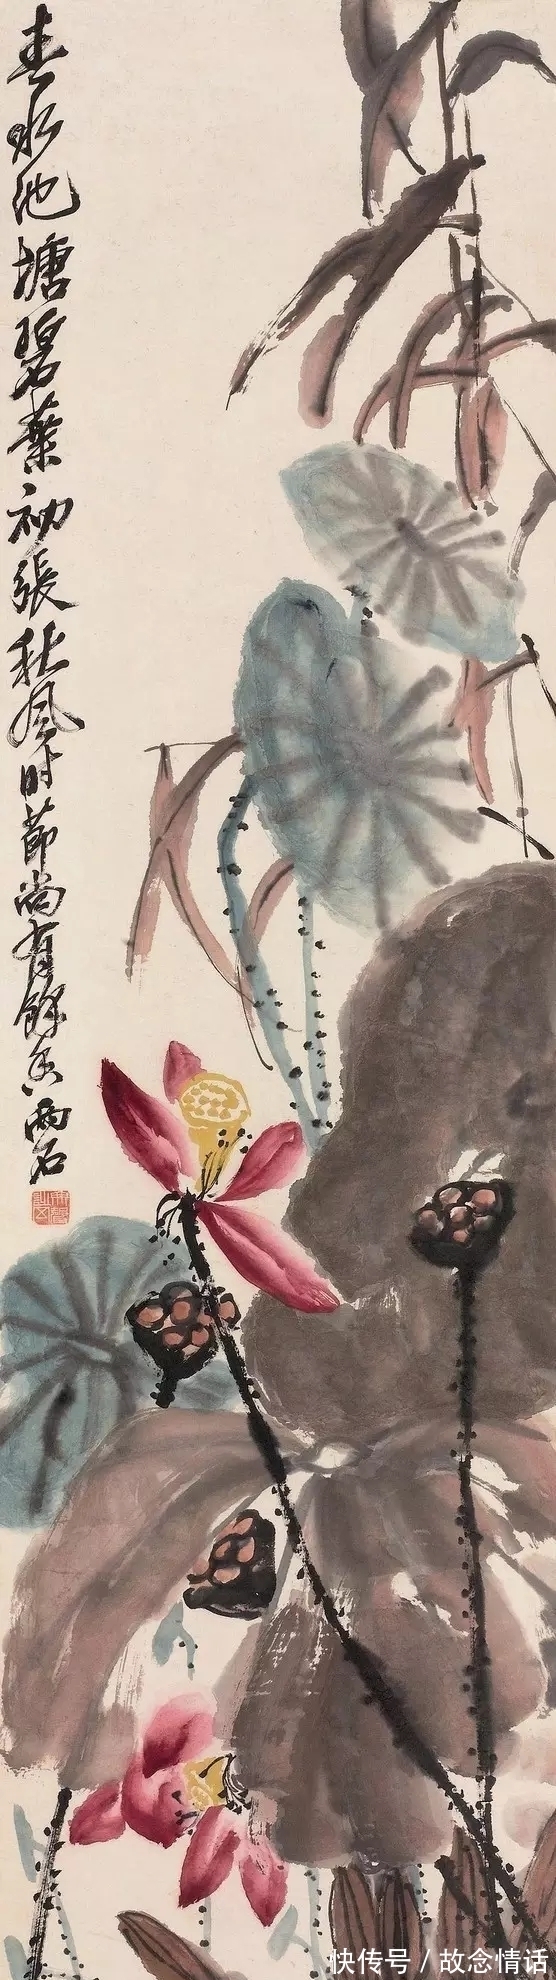 春水池塘碧葉初張秋風时節尚有餘香兩石
快传号/故念情话